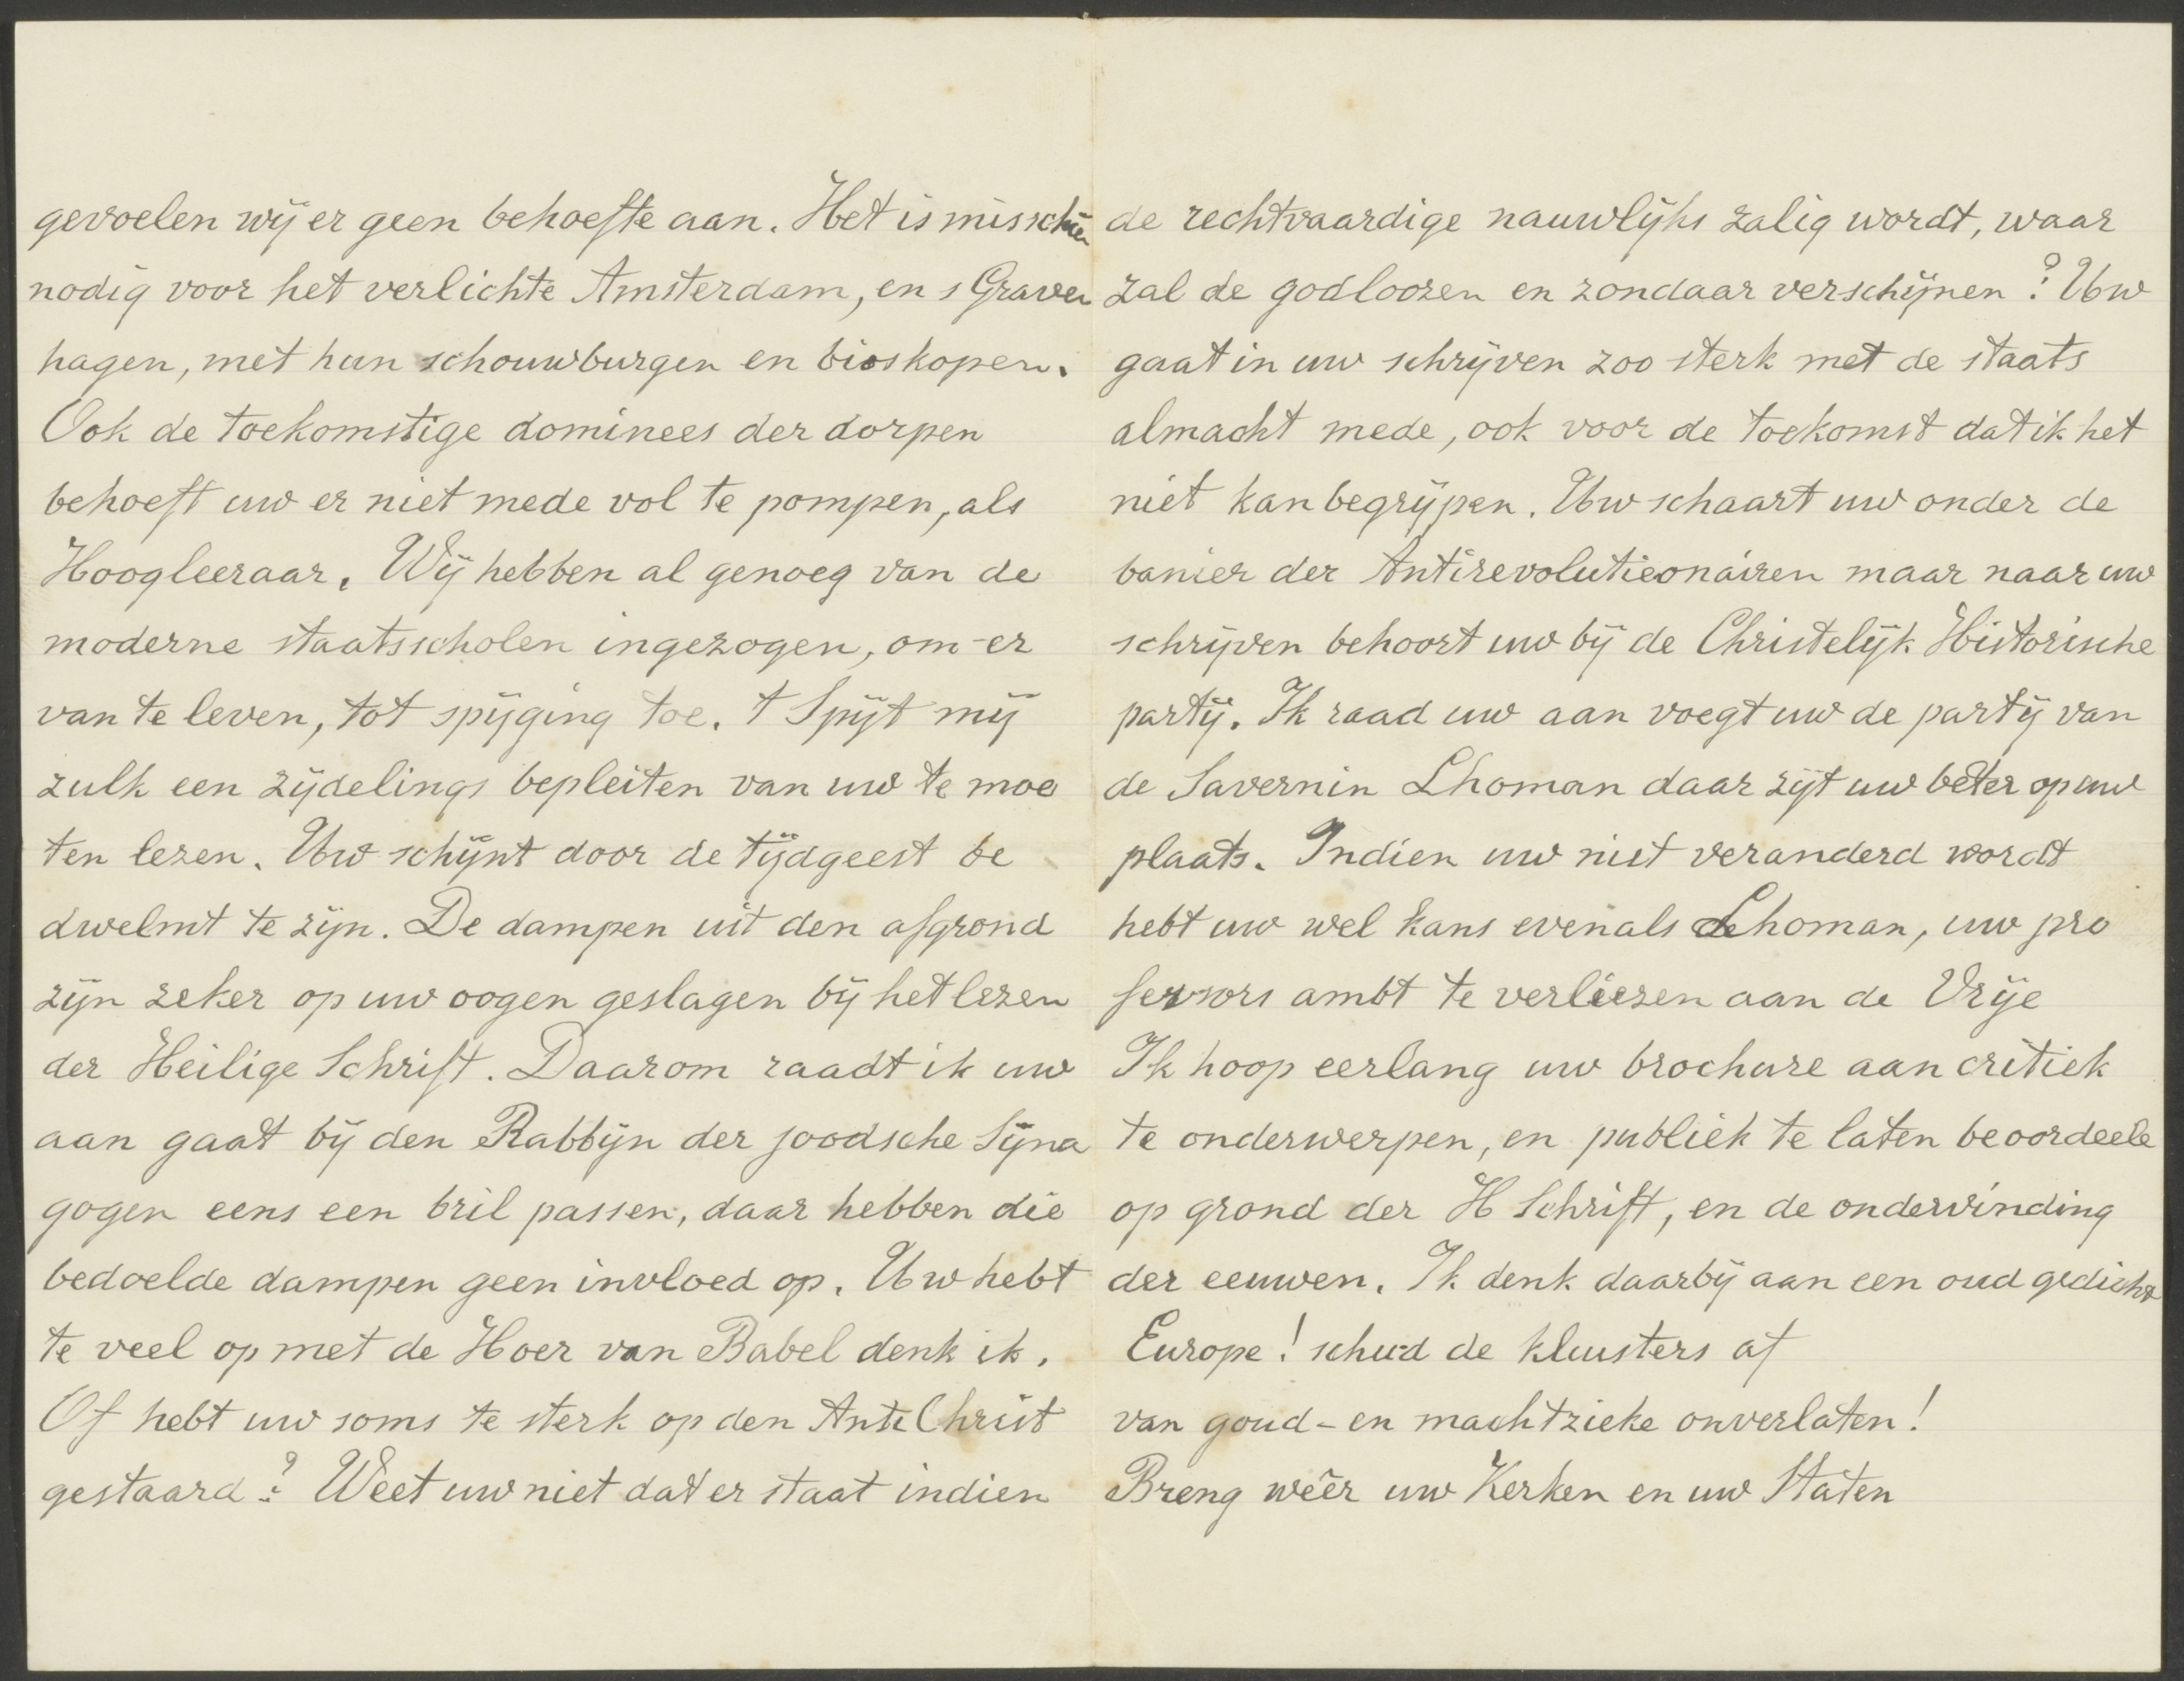 gevoelen wij er geen behoefte aan. Het is misschien
nodig voor het verlichte Amsterdam, en s Graven
hagen, met hun schouwburgen en bioskopen.
Ook de toekomstige dominees der dorpen
behoeft uw er niet mede vol te pompen, als
Hoogleeraar. Wij hebben al genoeg van de
moderne staatsscholen ingezogen, om er
van te leven, tot spijging toe. t Spijt mij
zulk een zijdelings bepleiten van uw te moe
ten lezen. Uw schijnt door de tijdgeest be
dwelmt te zijn. De dampen uit den afgrond
zijn zeker op uw oogen geslagen bij het lezen
der Heilige Schrift. Daarom raadt ik uw
aan gaat bij den Rabbijn der joodsche Sijna
gogen eens een bril passen, daar hebben die
bedoelde dampen geen invloed op. Uw hebt
te veel op met de Hoer van Babel denk ik.
Of hebt uw soms te sterk op den AntiChrist
gestaard? Weet uw niet dat er staat indien
de rechtvaardige nauwlijks zalig wordt, waar
zal de godloozen en zondaar verschijnen? Uw
gaat in uw schrijven zoo sterk met de staats
almacht mede, ook voor de toekomst dat ik het
niet kan begrijpen. Uw schaart uw onder de
banier der Antirevolutieonairen maar naar uw
schrijven behoort uw bij de Christelijk Historische
partij. Ik raad uw aan voegt uw de partij van
de Savernin Lhoman daar zijt uw beter op uw
plaats. Indien uw niet veranderd wordt
hebt uw wel kans evenals Lhoman, uw pro
fessors ambt te verliezen aan de Vrije
Ik hoop eerlang uw brochure aan critiek
te onderwerpen, en publiek te laten beoordeele
op grond der H Schrift, en de ondervinding
der eeuwen. Ik denk daarbij aan een oud gedicht
Europe! schud de kluisters af
van goud- en machtzieke onverlaten!
Breng wêer uw Kerken en uw Staten